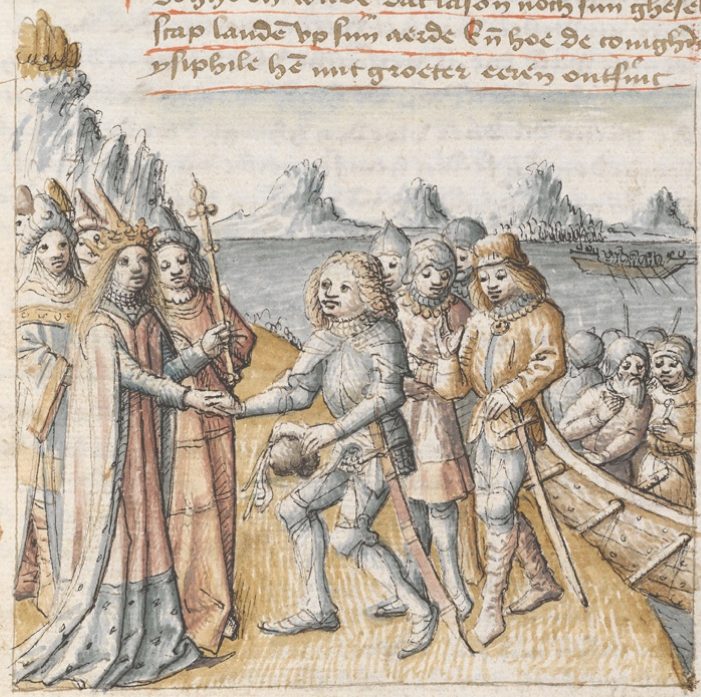 dat iason noch sijn ghesel
scap landē vp sijn aerde Eñ hoe de conighī
ysiphile hē mit groeter eeren ontfinc